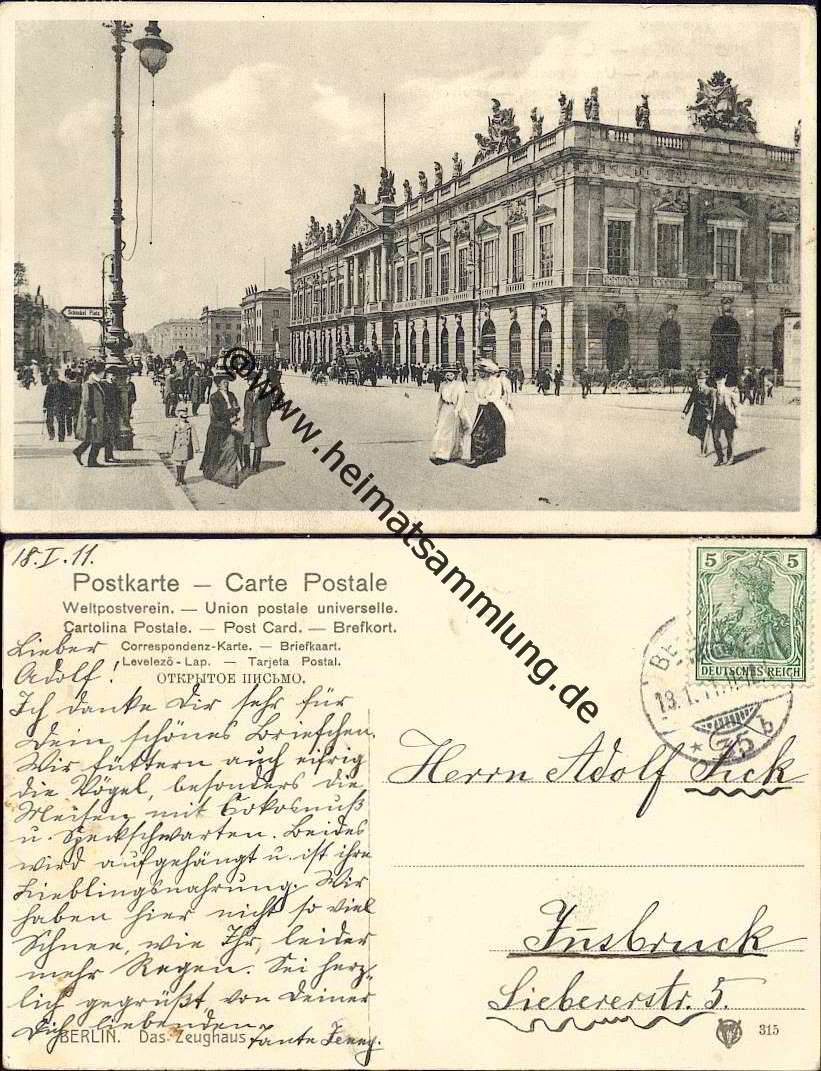 Schinkel Platz
@www.heimatsammlung.de
18.I.11.
Postkarte — Carte Postale
Weltpostverein. — Union postale universelle.
Cartolina Postale. — Post Card. — Brefkort.
Correspondenz-Karte. — Briefkaart.
Levelező-Lap. — Tarjeta Postal.
ОТКРЫТОЕ ПИСЬМО.
5 5
DEUTSCHES REICH
35 b
Lieber
Adolf!
Ich danke Dir sehr für
Dein schönes Briefchen.
Wir füttern auch eifrig
die Vögel, besonders die
Meisen mit Cokosnuß
u. Speckschwarten. Beides
wird aufgehängt u. ist ihre
Lieblingsnahrung. Wir
haben hier nicht so viel
Schnee, wie Ihr, leider
mehr Regen. Sei herz-
lich gegrüßt von Deiner
Dich liebenden
Tante Jenny.
Herrn Adolf Sick
Insbruck
Liebererstr. 5.
BERLIN. Das Zeughaus
315